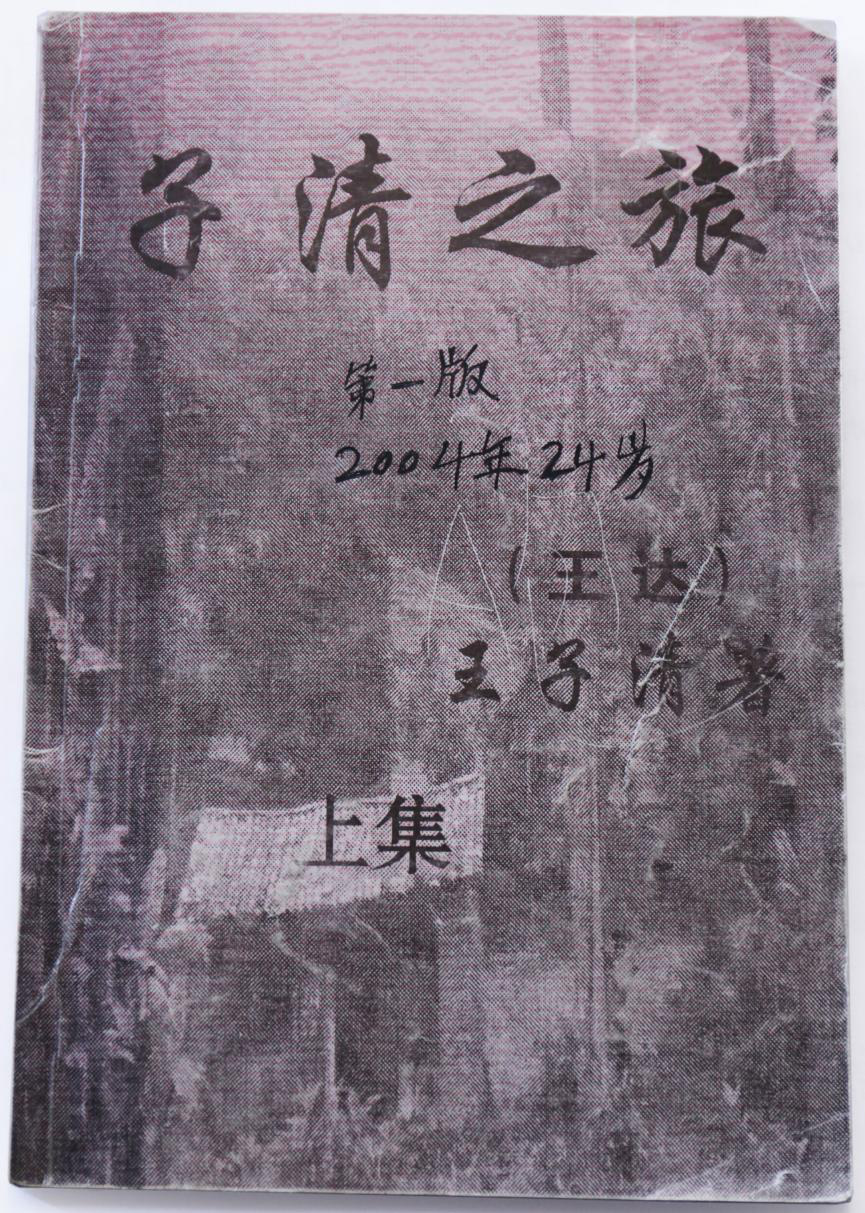 子清之旅
第一版
2004年24岁
（王达）
王子清著
上集